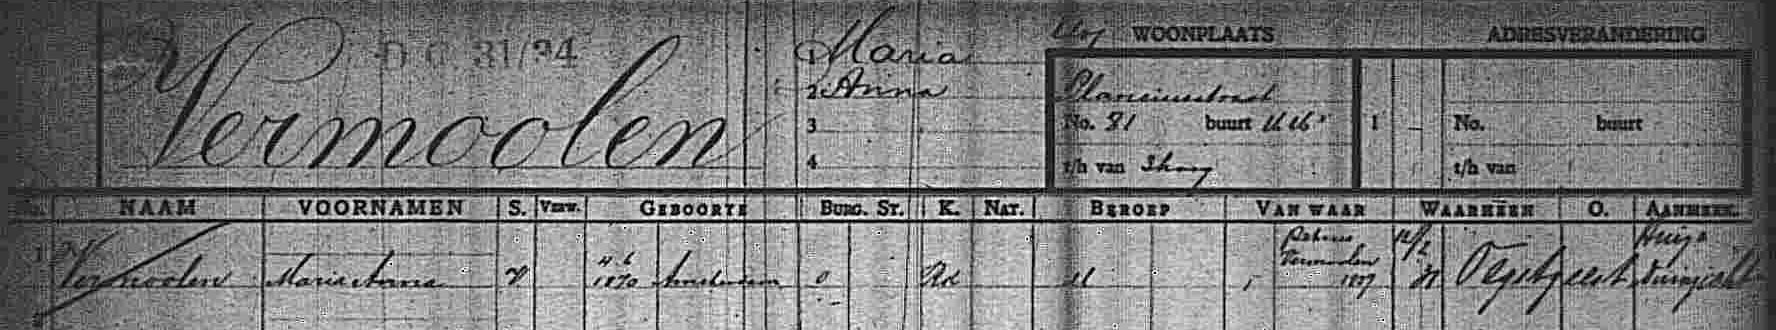 D.C. 31/34
Vermoolen
Maria
2 Anna
3
4
WOONPLAATS
Planciusstraat
No. 81 buurt
t/h van
1
ADRESVERANDERING
No. buurt
t/h van
NAAM VOORNAMEN S. Verw. GEBOORTE BURG. ST. K. NAT. BEROEP VAN WAAR WAARHEEN O. AANMERK.
1 Vermoolen Maria Anna V 4.6 1870 Amsterdam O RK Vermoolen 1897 Oegstgeest